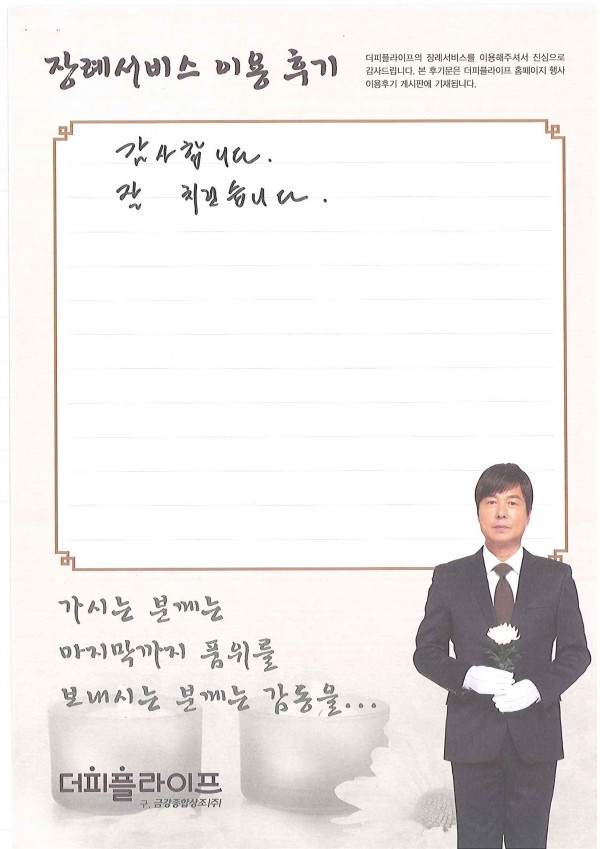 장례서비스 이용 후기
더피플라이프의 장례서비스를 이용해주셔서 진심으로
감사드립니다. 본 후기문은 더피플라이프 홈페이지 행사
이용후기 게시판에 기재됩니다.
감사합니다.
잘 치뤘습니다.
가시는 분께는
마지막까지 품위를
보내시는 분께는 감동을...
더피플라이프
구. 금강종합상조(주)